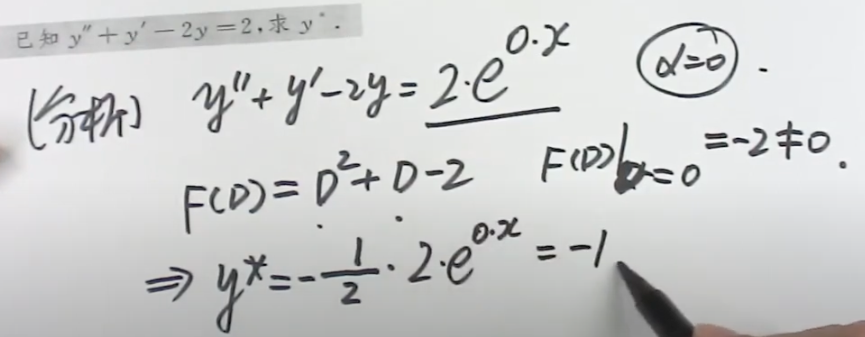 已知 y″+y′-2y=2,求 y*.
(分析) y″+y′-2y=2·e^{0·x} α=0.
F(D)=D²+D-2 F(D)|_{α=0}=-2≠0.
⇒ y*=-\frac{1}{2}·2·e^{0·x}=-1